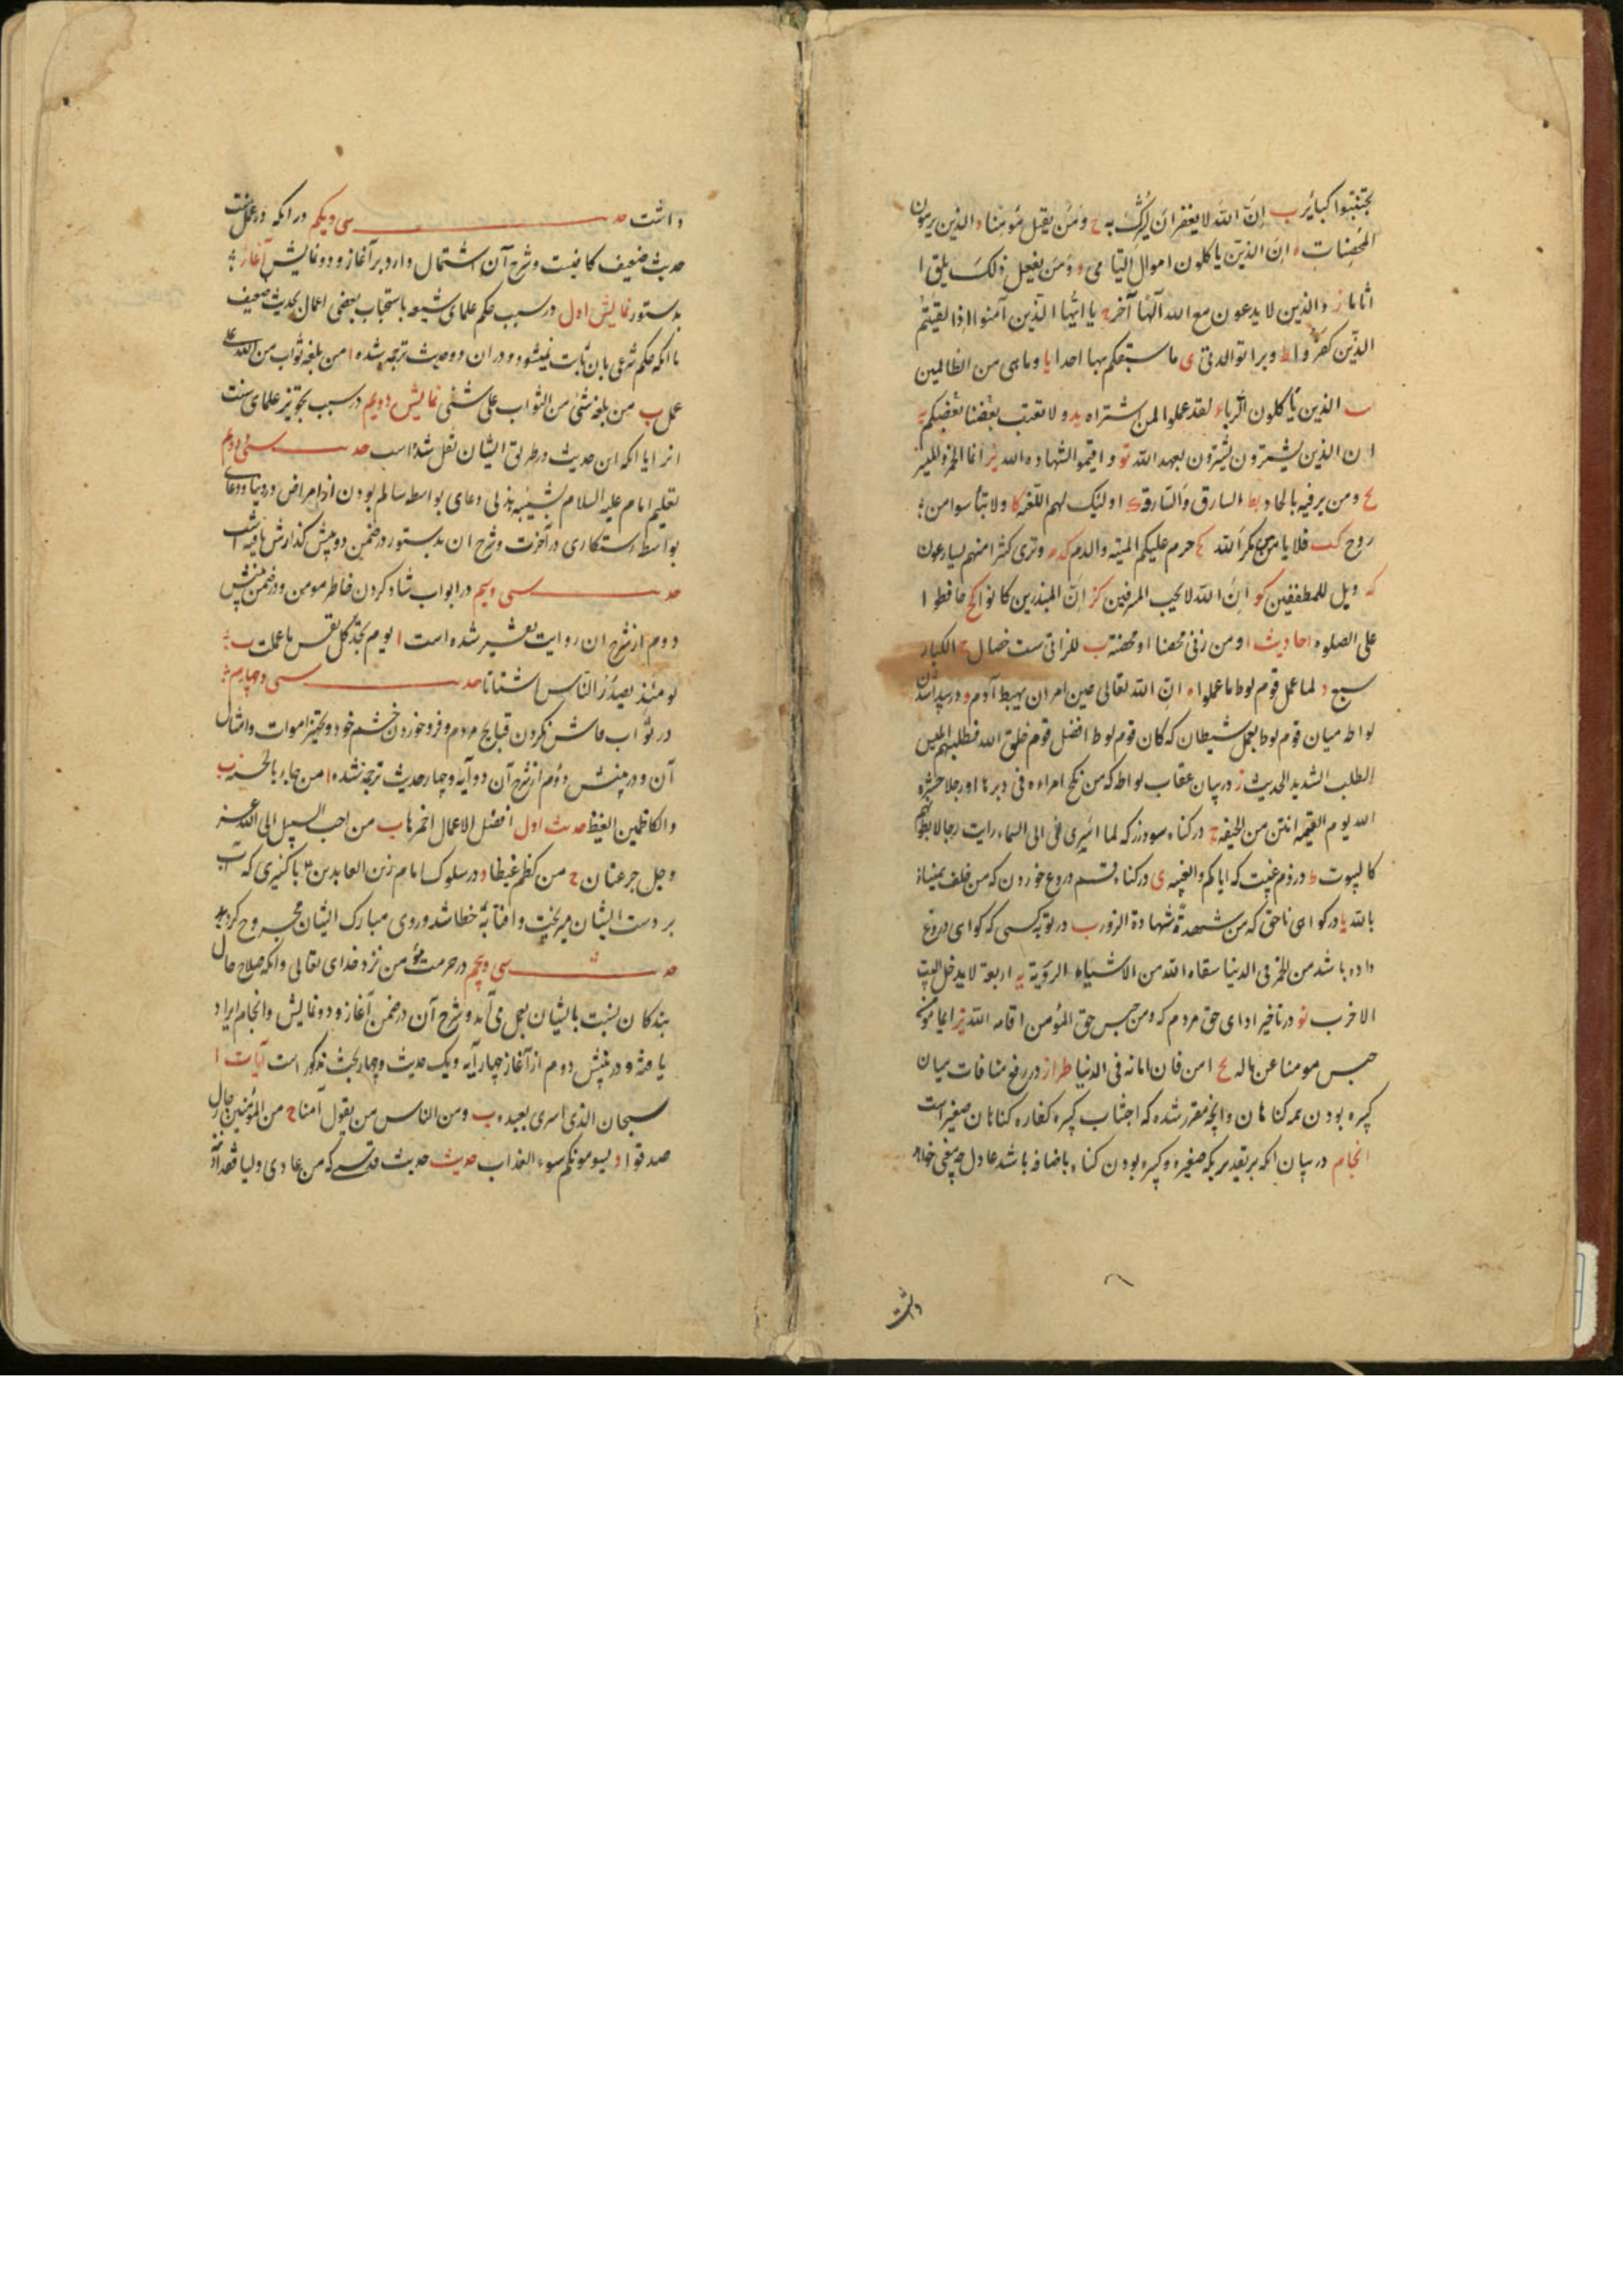 تجتنبوا کبائر ب إنّ الله لا یغفر ان یشرک به ج ومن یقتل مؤمنا د والذین یرمون
المحصنات ه ان الذین یاکلون اموال الیتامی و ومن یفعل ذلک یلق ا
اثاما ز والذین لا یدعون مع الله الٰها آخر ح یا ایها الذین آمنوا اذا لقیتم
الذین کفروا ط وبرا بوالدتی ی ما سبقکم بها احد یا وما هی من الظالمین
یب الذین یاکلون الربا یج لقد علموا لمن اشتراه ید ولا یغتب بعضکم بعضا یه
ان الذین یشترون بعهد الله یو واقیموا الشهادة لله یز انما الخمر والمیسر
یح ومن یرد فیه بالحاد یط السارق والسارقة ک اولئک لهم اللعنة کا ولا تیأسوا من
روح کب فلا یامن مکر الله کج حرم علیکم المیته والدم کد وتری کثیرا منهم یسارعون
که ویل للمطففین کو ان الله لا یحب المسرفین کز ان المبذرین کانوا کح حافظوا
علی الصلوه احادیث ا ومن زنی محصنا او محصنة ب للزانی ست خصال ج الکبائر
سبع د لما عمل قوم لوط ما عملوا ه ان الله تعالی حین امر ان یهبط آدم و در پیدا شدن
لواطه میان قوم لوط بعمل شیطان که کان قوم لوط افضل قوم خلق الله فطلبهم ابلیس
الطلب الشدید الحدیث ز در بیان عقاب لواط که من نکح امراءه فی دبرها او رجلا حشره
الله یوم القیمه انتن من الجیفه ح در کناه سود زر که لما اسری بی الی السماء رایت رجالا بطونهم
کالبیوت ط در ذم غیبت که ایاکم والغیبه ی در کناه قسم دروغ خوردن که من حلف بیمینه
بالله یا در کواهی ناحق که من شهد شهادة الزور یب در توبه کسی که کواهی دروغ
داده باشد من الخمر فی الدنیا سقاه الله من الاشیاء الرویة یه اربعة لا یدخل البیت
الاخرب یو در تاخیر ادای حق مردم که ومن حبس حق المؤمن اقامه الله یز ایما مؤمن
حبس مومنا عن ماله یح امن فان امانه فی الدنیا طراز در رفع منافات میان
کبیره بودن همه کناهان وانچه مقرر شده که اجتناب کبیره کفاره کناهان صغیر است
انجام در بیان انکه بر تقدیریکه صغیره وکبیره بودن کناه باضافه باشد عادل چه معنی خواهد
داشت
داشت حدیث سی ویکم در انکه در عمل سنت
حدیث ضعیف کافیست وشرح آن اشتمال دارد بر آغاز و دو نمایش آغاز
بدستور نمایش اول در سبب حکم علمای شیعه باستحباب بعضی اعمال بحدیث ضعیف
با انکه حکم شرعی بان ثابت نمیشود ودران دو حدیث ترجمه شده ا من بلغه ثواب من الله علی
عمل ب من بلغه شئ من الثواب علی شئی نمایش دویم در سبب تجویز علمای سنت
انرا با انکه این حدیث در طریق ایشان نقل شده است حدیث سی ودوم
تعلیم امام علیه السلام بشیبه هذلی دعای بواسطه سالم بودن از امراض در دنیا ودعای
بواسطه رستکاری در آخرت وشرح ان بدستور در ضمن دو پیش کذارش یافته است
حدیث سی وسیم در ابواب شاد کردن خاطر مومن ودر ضمن پیش
دوم از شرح ان روایت تفسیر شده است ا یوم تجد کل نفس ما عملت ب
یومئذ یصدر الناس اشتاتا حدیث سی وچهارم
در ثواب فاش نکردن قبایح مردم وفرو خوردن خشم خود وتجهیز اموات وامثال
آن ودر پیش دوم از شرح آن دو آیه وچهار حدیث ترجمه شده ا من جاء بالحسنه ب
والکاظمین الغیظ حدیث اول افضل الاعمال احمزها ب من احب السبیل الی الله عز
وجل جرعتان ج من کظم غیظا د در سلوک امام زین العابدین ع با کنیزی که آب
بر دست ایشان میریخت وافتابه خطا شد وروی مبارک ایشان مجروح کردید
حدیث سی وپنجم در حرمت مؤمن نزد خدای تعالی وانکه صلاح حال
بندکان بنسبت بایشان بعمل می آید وشرح آن در ضمن آغاز و دو نمایش وانجام ایراد
یافته ودر پیش دوم از آغاز چهار آیه ویک حدیث وچهار بحث مذکور است آیات ا
سبحان الذی اسری بعبده ب ومن الناس من یقول آمنا ج من المؤمنین رجال
صدقوا د یسومونکم سوء العذاب حدیث حدیث قدسی که من عادی ولیا فقد اذن